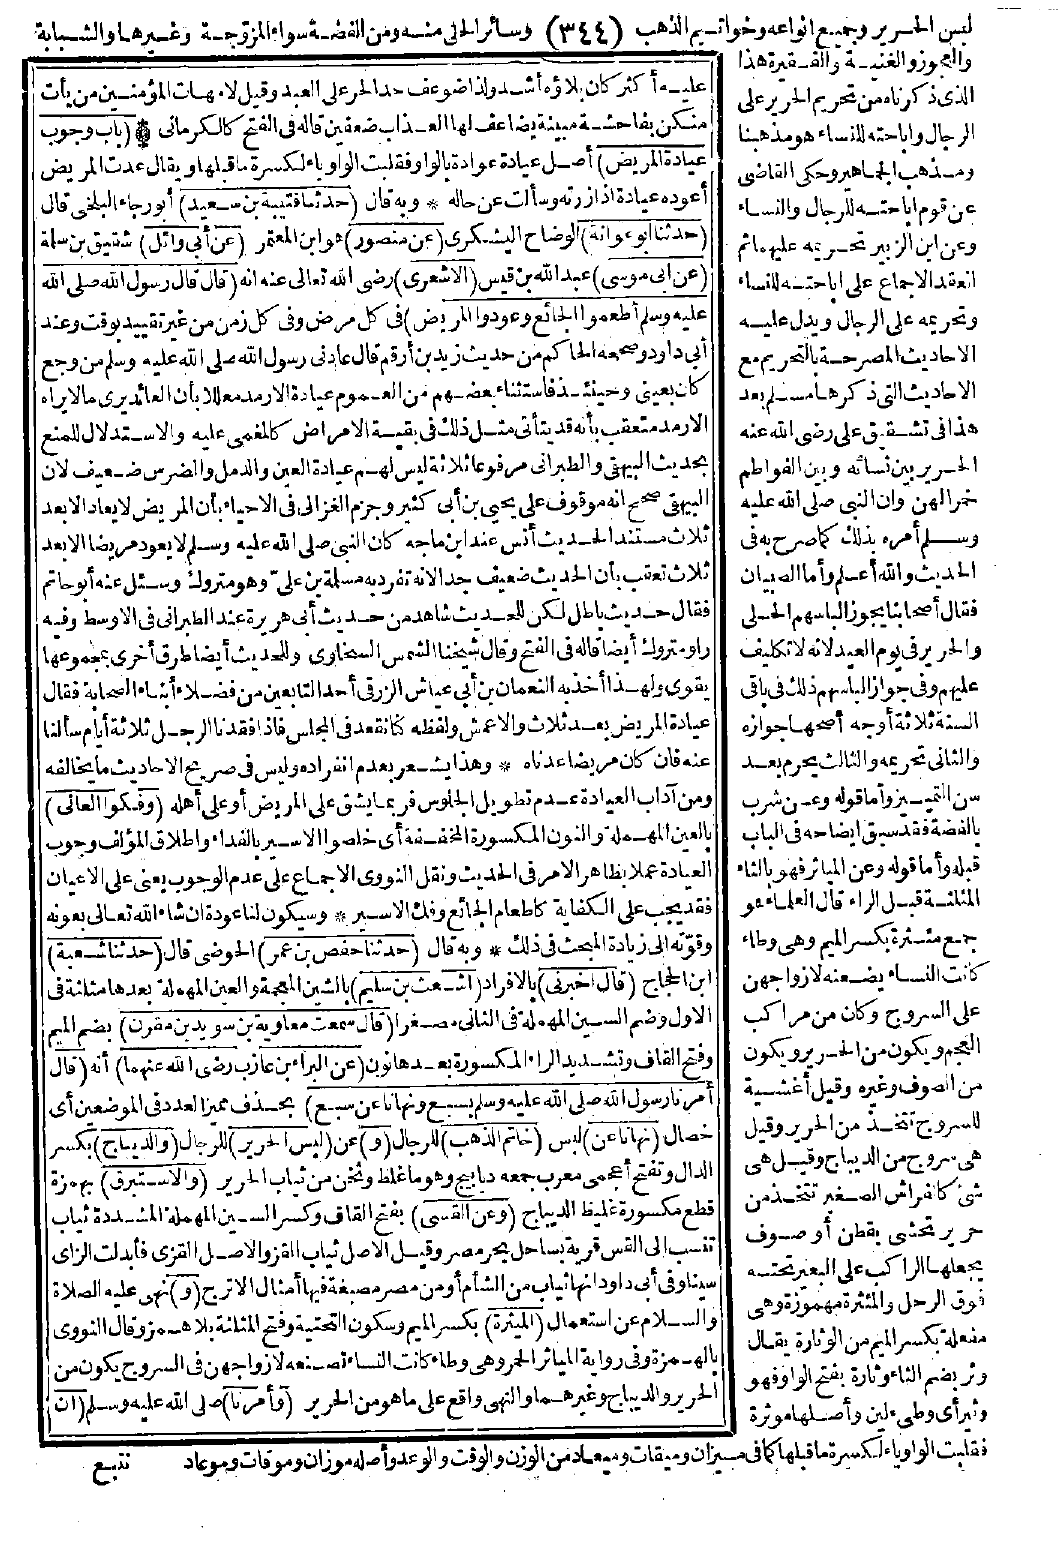 لبس الحرير وجميع أنواعه وخواتيم الذهب (٣٤٤) وسائر الحلى منه ومن الفضة سواء المزوّجة وغيرها والشابة
والعجوز والغنية والفقيرة هذا
الذى ذكرناه من تحريم الحرير على
الرجال واباحته للنساء هو مذهبنا
ومذهب الجماهير وحكى القاضى
عن قوم اباحته للرجال والنساء
وعن ابن الزبير تحريمه عليهما ثم
انعقد الاجماع على اباحته للنساء
وتحريمه على الرجال ويدل عليه
الاحاديث المصرحة بالتحريم مع
الاحاديث التى ذكرها مسلم بعد
هذا فى تشقيق على رضى الله عنه
الحرير بين نسائه وبين الفواطم
خمرا لهن وان النبى صلى الله عليه
وسلم أمره بذلك كما صرح به فى
الحديث والله أعلم وأما الصبيان
فقال أصحابنا يجوز الباسهم الحلى
والحرير فى يوم العيد لانه لا تكليف
عليهم وفى جواز الباسهم ذلك فى باقى
السنة ثلاثة أوجه أصحها جوازه
والثانى تحريمه والثالث يحرم بعد
سن التمييز وأما قوله وعن شرب
بالفضة فقد سبق ايضاحه فى الباب
قبله وأما قوله وعن المياثر فهو بالثاء
المثلثة قبل الراء قال العلماء هو
جمع مئثرة بكسر الميم وهى وطاء
كانت النساء يضعنه لازواجهن
على السروج وكان من مراكب
العجم ويكون من الحرير ويكون
من الصوف وغيره وقيل أغشية
للسروج تتخذ من الحرير وقيل
هى سروج من الديباج وقيل هى
شئ كالفراش الصغير تتخذ من
حرير تحشى بقطن أو صوف
يجعلها الراكب على البعير تحته
فوق الرحل والمئثرة مهموزة وهى
مفعلة بكسر الميم من الوثارة يقال
وثر بضم الثاء وثارة بفتح الواو فهو
وثير أى وطىء لين وأصلها موثرة
فقلبت الواو ياء لكسرة ما قبلها كما فى ميزان وميقات وميعاد من الوزن والوقت والوعد وأصله موزان وموقات وموعاد
تتبع
عليه أكثر كان بلاؤه أشد ولذا ضوعف حد الحر على العبد وقيل لامهات المؤمنين من يأت
منكن بفاحشة مبينة يضاعف لها العذاب ضعفين قاله فى الفتح كالكرمانى (باب وجوب
عيادة المريض) أصل عيادة عوادة بالواو فقلبت الواو ياء لكسرة ما قبلها ويقال عدت المريض
أعوده عيادة اذا زرته وسألت عن حاله * وبه قال (حدثنا قتيبة بن سعيد) أبو رجاء البلخى قال
(حدثنا أبو عوانة) الوضاح اليشكرى (عن منصور) هو ابن المعتمر (عن أبى وائل) شقيق بن سلمة
(عن ابى موسى) عبد الله بن قيس (الاشعرى) رضى الله تعالى عنه انه (قال قال رسول الله صلى الله
عليه وسلم أطعموا الجائع وعودوا المريض) فى كل مرض وفى كل زمن من غير تقييد بوقت وعند
أبى داود وصححه الحاكم من حديث زيد بن أرقم قال عادنى رسول الله صلى الله عليه وسلم من وجع
كان بعينى وحينئذ فاستثناء بعضهم من العموم عيادة الارمد معللا بأن العائد يرى ما لا يراه
الارمد متعقب بأنه قد يتأتى مثل ذلك فى بقية الامراض كالمغمى عليه والاستدلال للمنع
بحديث البيهقى والطبرانى مرفوعا ثلاثة ليس لهم عيادة العين والدمل والضرس ضعيف لان
البيهقى صحح انه موقوف على يحيى بن أبى كثير وجزم الغزالى فى الاحياء بأن المريض لا يعاد الا بعد
ثلاث مستند الحديث أنس عند ابن ماجه كان النبى صلى الله عليه وسلم لا يعود مريضا الا بعد
ثلاث تعقب بأن الحديث ضعيف جدا لانه تفرد به مسلمة بن علىّ وهو متروك وسئل عنه أبو حاتم
فقال حديث باطل لكن للحديث شاهد من حديث أبى هريرة عند الطبرانى فى الاوسط وفيه
راو متروك أيضا قاله فى الفتح وقال شيخنا الشمس السخاوى وللحديث أيضا طرق أخرى بمجموعها
يقوى ولهذا أخذ به النعمان بن أبى عياش الزرقى أحد التابعين من فضلاء أبناء الصحابة فقال
عيادة المريض بعد ثلاث والاعمش ولفظه كنا نقعد فى المجلس فاذا فقدنا الرجل ثلاثة أيام سألنا
عنه فان كان مريضا عدناه * وهذا يشعر بعدم انفراده وليس فى صريح الاحاديث ما يخالفه
ومن آداب العيادة عدم تطويل الجلوس فربما يشق على المريض أو على أهله (وفكوا العانى)
بالعين المهملة والنون المكسورة المخففة أى خلصوا الاسير بالفداء واطلاق المؤلف وجوب
العيادة عملا بظاهر الامر فى الحديث ونقل النووى الاجماع على عدم الوجوب يعنى على الاعيان
فقد يجب على الكفاية كاطعام الجائع وفك الاسير * وسيكون لنا عودة ان شاء الله تعالى بعونه
وقوّته الى زيادة المبحث فى ذلك * وبه قال (حدثنا حفص بن عمر) الحوضى قال (حدثنا شعبة)
ابن الحجاج (قال اخبرنى) بالافراد (اشعث بن سليم) بالشين المعجمة والعين المهملة بعدها مثلثة فى
الاول وضم السين المهملة فى الثانى مصغرا (قال سمعت معاوية بن سويد بن مقرن) بضم الميم
وفتح القاف وتشديد الراء المكسورة بعدها نون (عن البراء بن عازب رضى الله عنهما) أنه (قال
أمرنا رسول الله صلى الله عليه وسلم بسبع ونهانا عن سبع) بحذف مميز العدد فى الموضعين أى
خصال (نهانا عن) لبس (خاتم الذهب) للرجال (و) عن (لبس الحرير) للرجال (والديباج) بكسر
الدال وتفتح أعجمى معرب جمعه ديابيج وهو ما غلظ وثخن من ثياب الحرير (والاستبرق) بهمزة
قطع مكسورة غليظ الديباج (وعن القسى) بفتح القاف وكسر السين المهملة المشددة ثياب
تنسب الى القس قرية بساحل بحر مصر وقيل الاصل ثياب القز والاصل القزى فأبدلت الزاى
سينا وفى أبى داود انها ثياب من الشأم أو من مصر مصبغة فيها أمثال الاترج (و) نهى عليه الصلاة
والسلام عن استعمال (الميثرة) بكسر الميم وسكون التحتية وفتح المثلثة بلا همز وقال النووى
بالهمزة وفى رواية المياثر الحمر وهى وطاء كانت النساء تصنعه لازواجهن فى السروج يكون من
الحرير والديباج وغيرهما والنهى واقع على ما هو من الحرير (وأمرنا) صلى الله عليه وسلم (ان